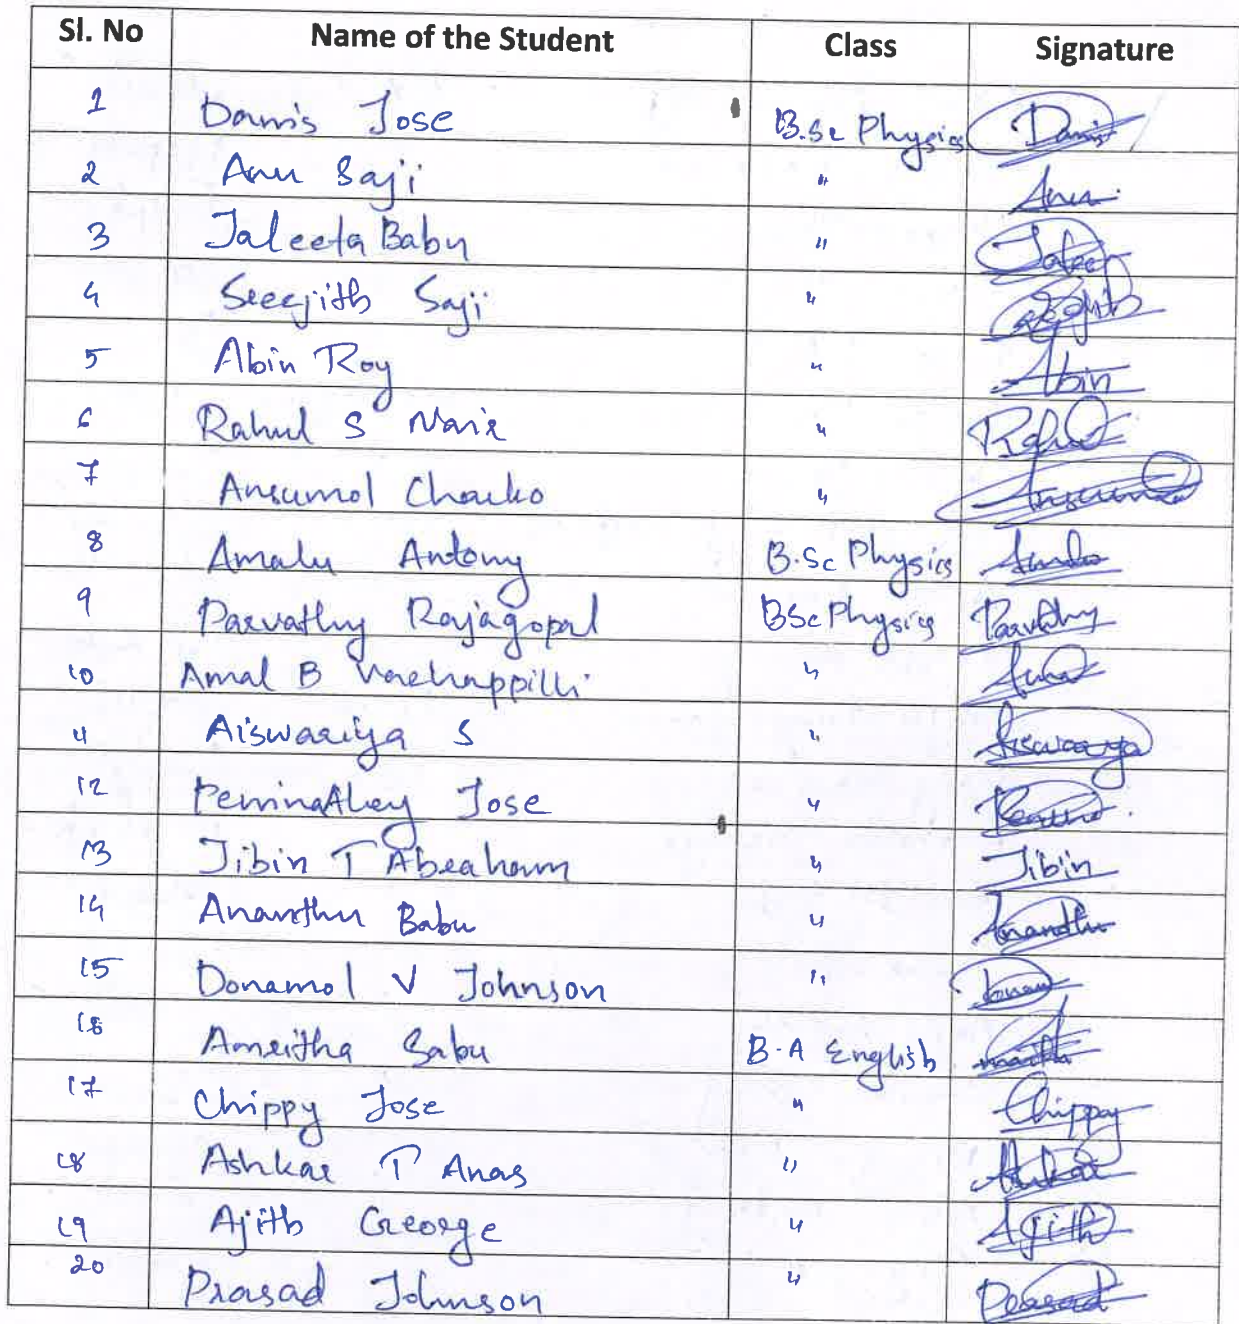 Sl. No Name of the Student Class Signature
1 Danis Jose B.Sc Physics Danis
2 Anu Saji " Anu
3 Jaleeta Babu " Jaleeta
4 Sreejith Saji "
5 Abin Roy " Abin
6 Rahul S Nair " Rahul
7 Ansumol Chacko " Ansumol
8 Amalu Antony B.Sc Physics
9 Parvathy Rajagopal BSc Physics Parvathy
10 Amal B Vachappilli " Amal
11 Aiswariya S " Aiswarya
12 Peninathey Jose "
13 Jibin T Abraham " Jibin
14 Ananthu Babu " Anandhu
15 Donamol V Johnson " Donam
16 Amritha Sabu B.A English
17 Chippy Jose " Chippy
18 Ashkar T Anas " Ashkar
19 Ajith George " Ajith
20 Prasad Johnson " Prasad